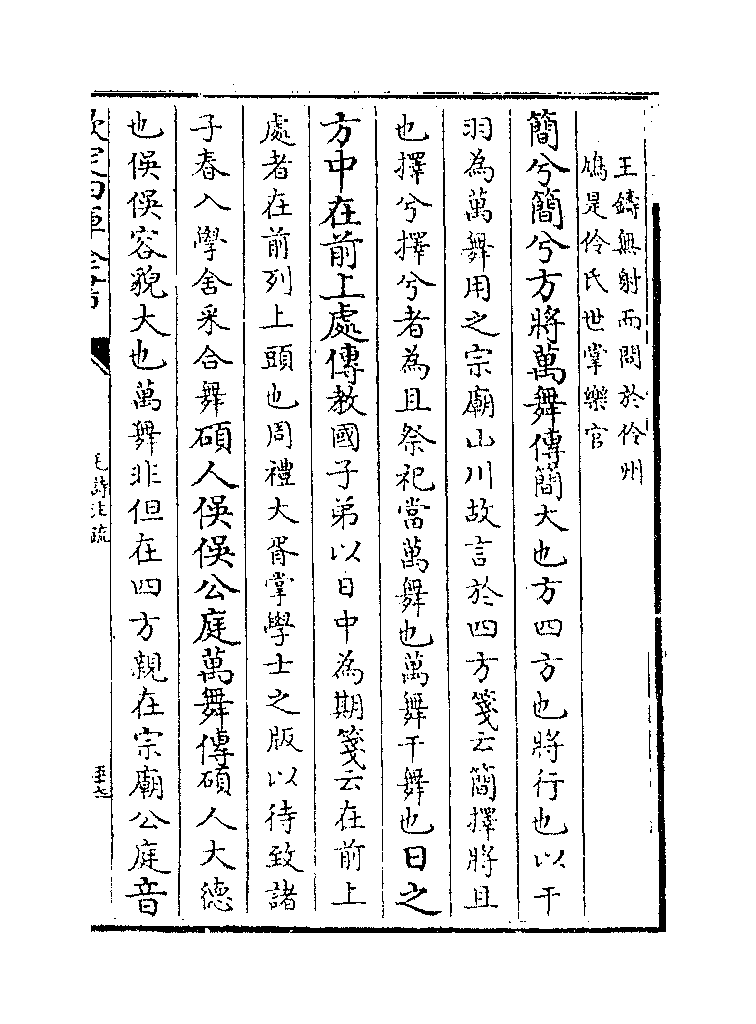 王鑄無射而問於伶州
鳩是伶氏世掌樂官
簡兮簡兮方將萬舞傳簡大也方四方也將行也以干
羽為萬舞用之宗廟山川故言於四方箋云簡擇將且
也擇兮擇兮者為且祭祀當萬舞也萬舞干舞也日之
方中在前上處傳教國子弟以日中為期箋云在前上
處者在前列上頭也周禮大胥掌學士之版以待致諸
子春入學舍采合舞碩人俁俁公庭萬舞傳碩人大德
也俁俁容貌大也萬舞非但在四方親在宗廟公庭音
欽定四庫全書
毛詩注疏